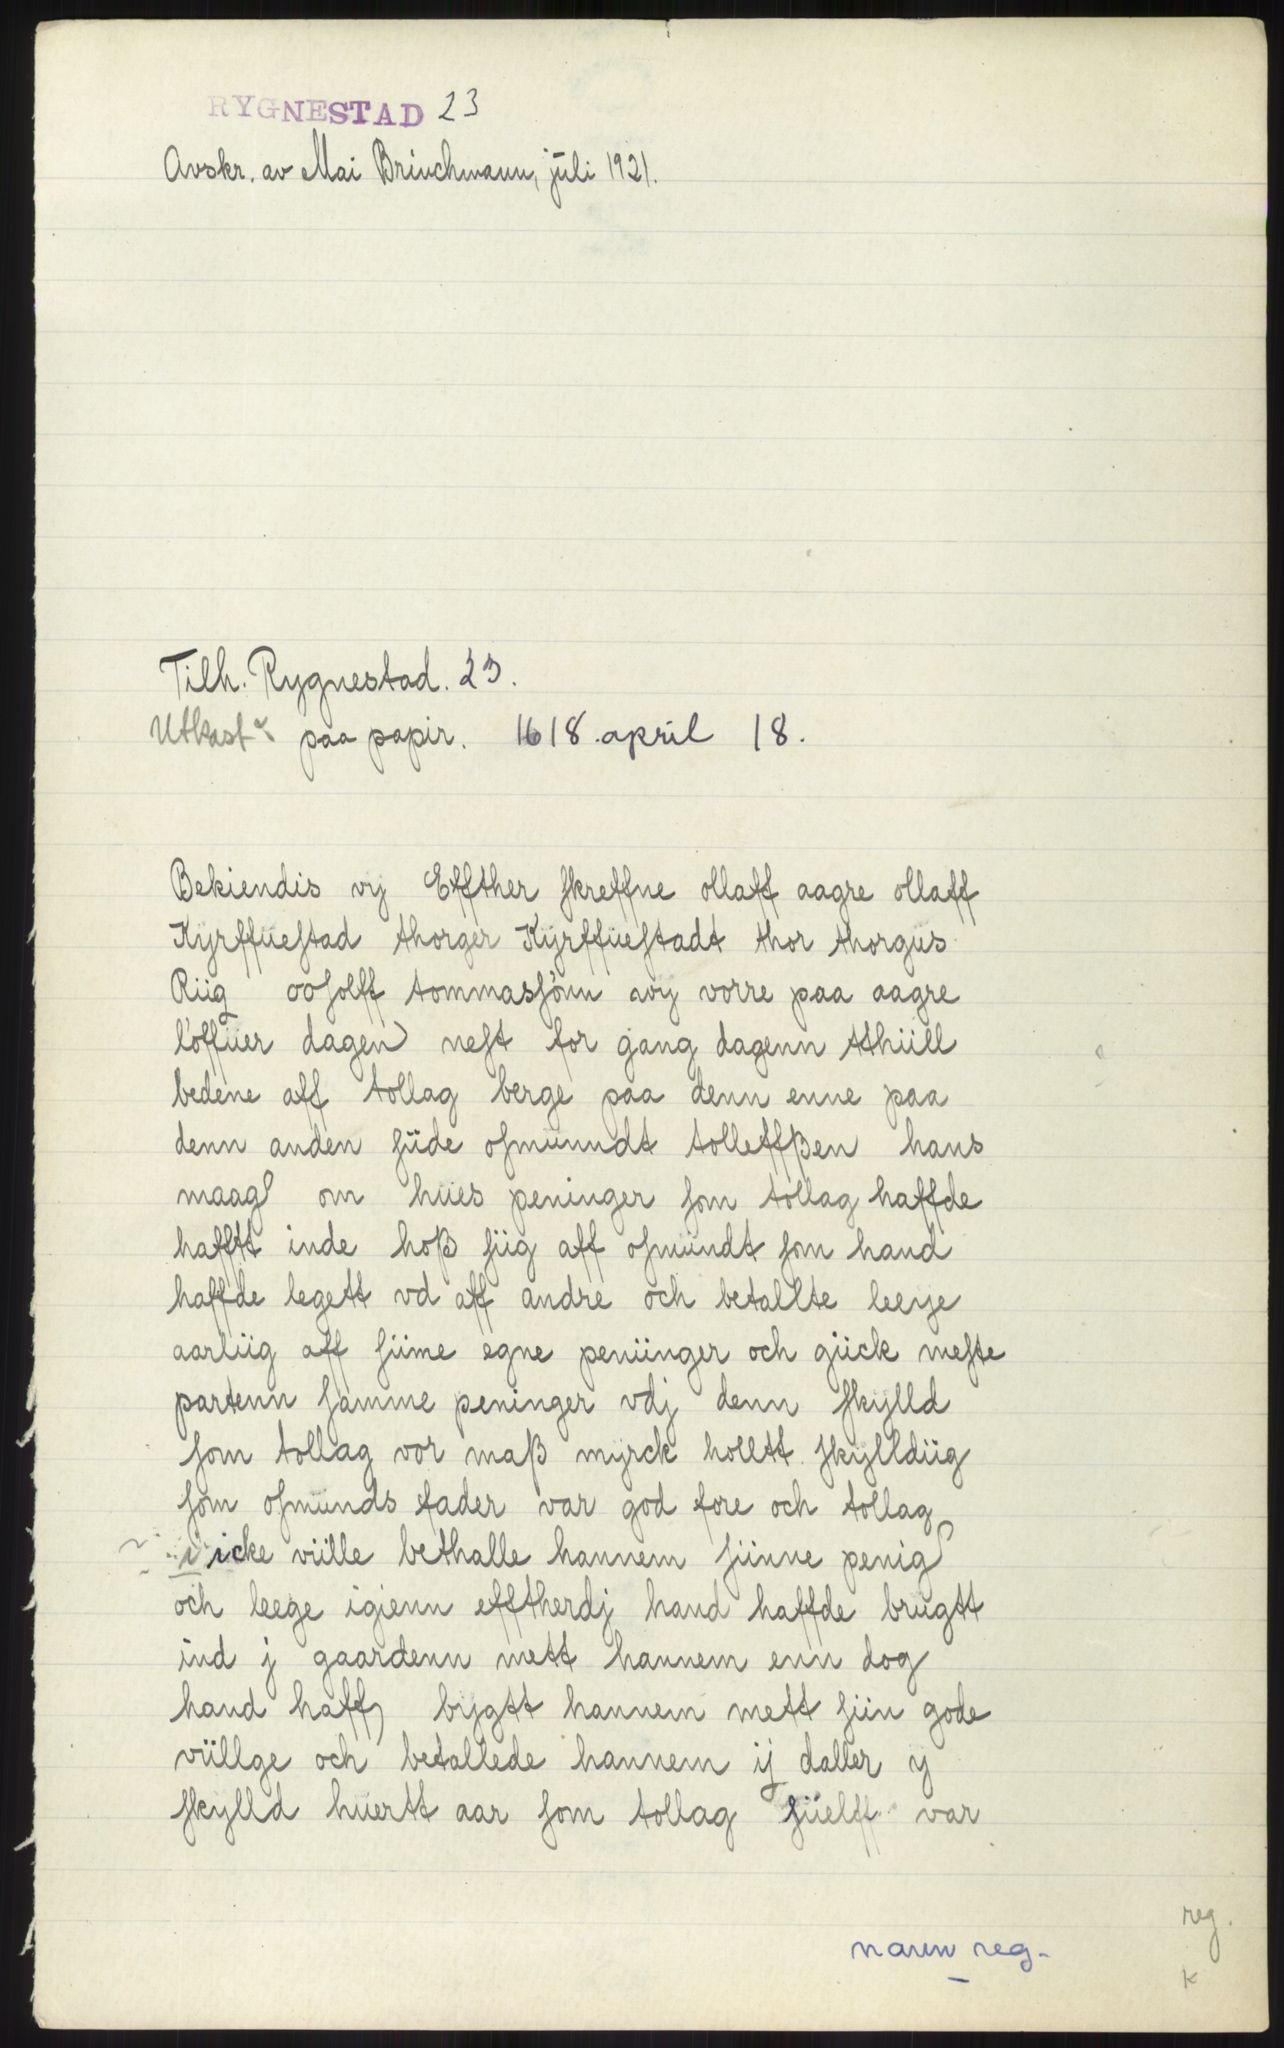 RYGNESTAD 23
Avskr. av Mai Brinchmann, juli 1921.
Tilh. Rygnestad. 23.
Utkast paa papir. 1618 april 18.
Bekiendis vy Effther skreffne ollaff aagre ollaff
Kyrffuestad thorger Kyrffuestadt thor thorgus
Riig oosolff tommassønn wy vorre paa aagre
løffuer dagen nest for gang dagenn tthiill
bedene aff tollag berge paa denn enne paa
denn anden siide osmunndt tolleffßen hans
maag om hues peninger som tollag haffde
hafftt inde hoß siig aff osmundt som hand
haffde legett vd aff andre och betallte leeye
aarliig aff siine egne peniinger och giick meste
partenn samme peninger vdj denn skylld
som tollag vor maß myrck holltt skylldiig
som osmunds fader var god fore och tollag
icke viille bethalle hannem siinne penig
och leege igienn efftherdj hand haffde brugtt
ind j gaardenn mett hannem enn dog
hand haff bygtt hannem mett siin gode
viillge och betallede hannem ij daller y
skylld huertt aar som tollag siielff var
reg.
navn reg-
k